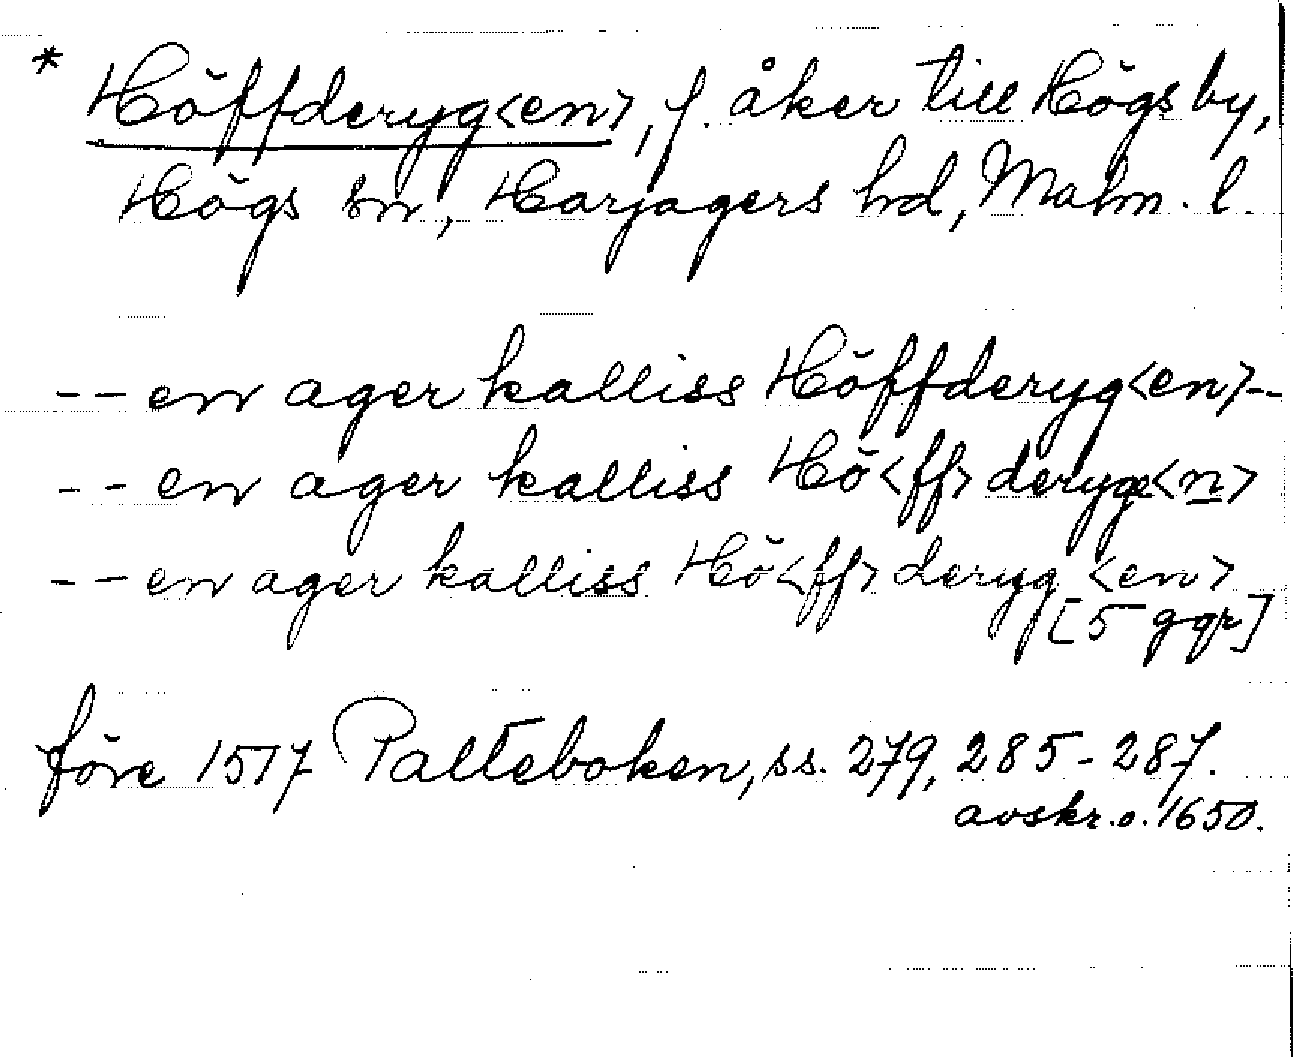 * Höffderyg<en>, f. åker till Högs by,
Högs sn, Harjagers hd, Malm. l.
-- en ager kalliss Höffderyg<en>--
-- en ager kalliss Hö<ff>deryge<n>
-- en ager kalliss Hö<ff>deryg<en>
[5 ggr]
före 1517 Palteboken, ss. 279, 285-287.
avskr. o. 1650.